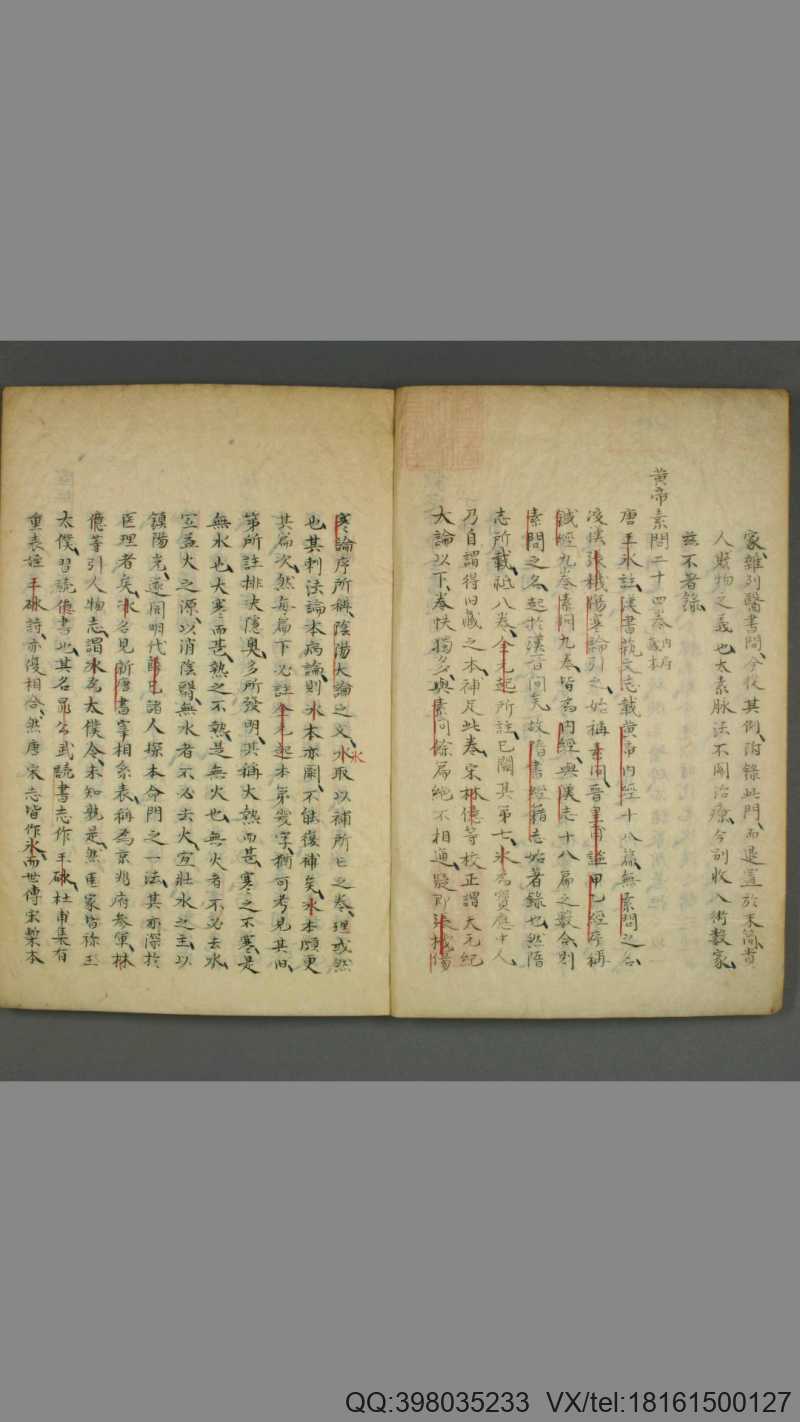 家雜列醫書間今從其例附錄此門而退置於末簡貴
人賤物之義也太素脉法不關治療今別收入術數家
茲不著錄
黃帝素問二十四卷內府藏本
唐王氷註漢書執文志載黃帝內經十八篇無素問之名
後漢張機傷寒論引之始稱素問晉皇甫謐甲乙經序稱
鍼經九卷素問九卷皆為內經與漢志十八篇之數合則
素問之名起於漢晉間矣故隋書經籍志始著錄也然隋
志所載祗八卷全元起所註已闕其第七氷為寶應中人
乃自謂得旧藏之本補足此卷宋林億等校正謂天元紀
大論以下卷帙獨多與素問餘篇絕不相通疑即張機傷
寒論序所稱陰陽大論之文氷取以補所亡之卷理或然
也其刺法論本病論則氷本亦闕不能復補矣氷本頗更
其篇次然每篇下必註全元起本第幾字猶可考見其旧
第所註排決隱奧多所發明其稱大熱而甚寒之不寒是
無水也大寒而甚熱之不熱是無火也無火者不必去水
宜益火之源以消陰翳無水者不必去火宜壯水之主以
鎮陽光遂開明代薛已諸人探本命門之一法其亦深於
医理者矣氷名見新唐書宰相系表稱為京兆府参軍林
億等引人物志謂氷為太僕令未知孰是然医家皆称王
太僕習読億書也其名晁公武読書志作王砅杜甫集有
重表姪王砅詩亦復相合然唐宋志皆作氷而世傳宋槧本
氷
QQ:398035233 VX/tel:18161500127